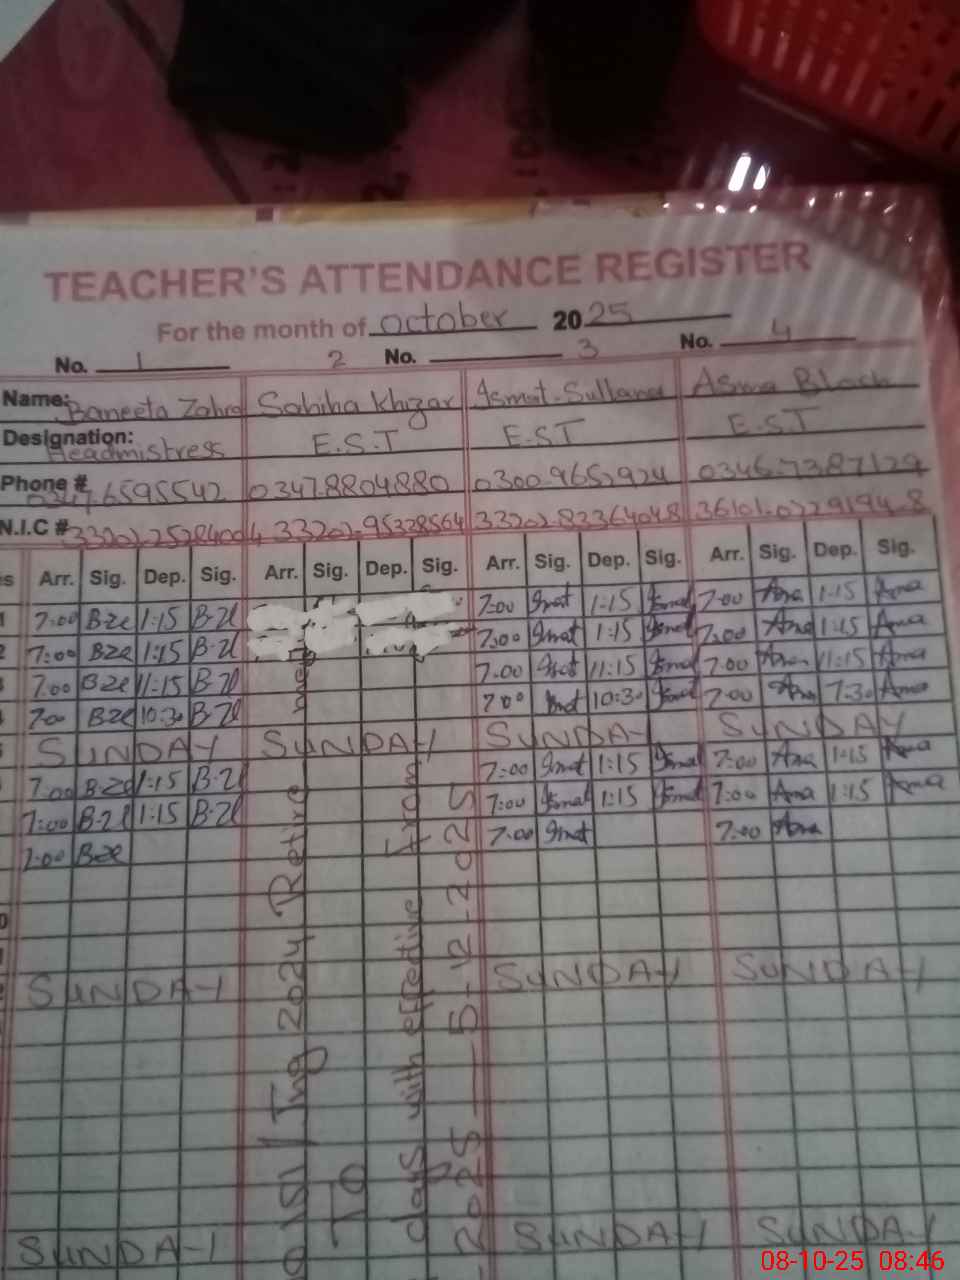 TEACHER'S ATTENDANCE REGISTER
For the month of October 2025
No. 1 2 No. 3 No. 4
Name: Baneeta Zahra Sabiha Khizar Ismat-Sultana Asma Bloch
Designation: Headmistress E.S.T E.S.T E.S.T
Phone # 0347.6595542 0347.8804880 0300.9652924 0346.7387129
N.I.C # 33202.95328564 33202.83364048 36101.0229194-8
Arr. Sig. Dep. Sig. Arr. Sig. Dep. Sig. Arr. Sig. Dep. Sig. Arr. Sig. Dep. Sig.
1 7:00 B-Ze 1:15 B-Zl 7:00 Ismat 1:15 Ismat 7:00 Asma 1:15 Asma
2 7:00 B-Ze 1:15 B-Zl 7:00 Ismat 1:15 Ismat 7:00 Asma 1:15 Asma
7:00 B-Ze 11:15 B-Zl 7:00 Ismat 11:15 Ismat 7:00 Asma 11:15 Asma
7:00 B-Ze 10:30 B-Zl 7:00 Ismat 10:30 Ismat 7:00 Asma 7:30 Asma
SUNDAY SUNDAY SUNDAY SUNDAY
7:00 B-Zl 1:15 B-Zl 7:00 Ismat 1:15 Ismat 7:00 Asma 1:15 Asma
7:00 B-Zl 1:15 B-Zl 7:00 Ismat 1:15 Ismat 7:00 Asma 1:15 Asma
7:00 B-Ze 7:00 Ismat 7:00 Asma
SUNDAY SUNDAY SUNDAY
SUNDAY SUNDAY SUNDAY
2024 Retire
To
days with effective from
2025 — 5-12-2025
08-10-25 08:46